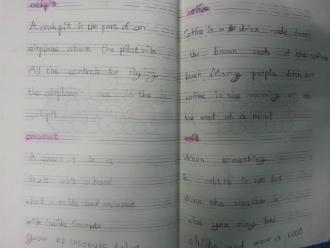 cockpit
A cockpit is the part of an
airplane where the pilot sits
All the controls for flying
the airplane are in the
cockpit
coconut
A coconut is a
fruit with a hard
shell outside and coconut
milk inside Coconuts
grow on coconute
coffee
Coffee is a drink made from
the brown
bean Many people drink
coffee in the morning or at
the end of a meal
cold
When something
is cold it is not hot
When the weather is
cold you may feel
chilled and